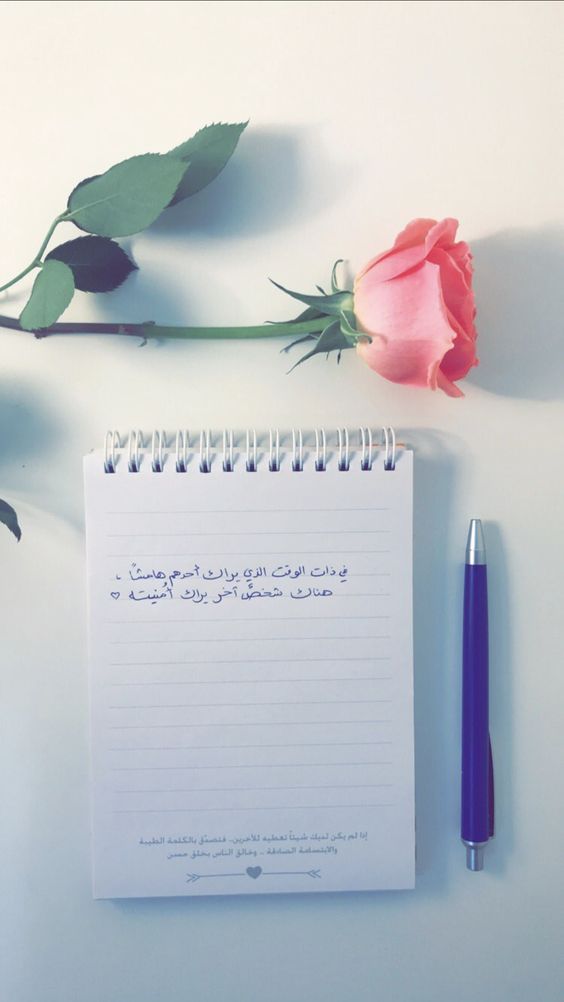 في ذات الوقت الذي يراك أحدهم هامشًا ،
هناك شخصٌ آخر يراك أُمنيته ♡
إذا لم يكن لديك شيئاً تعطيه للآخرين.. فتصدّق بالكلمة الطيبة
والابتسامة الصادقة .. وخالق الناس بخلق حسن